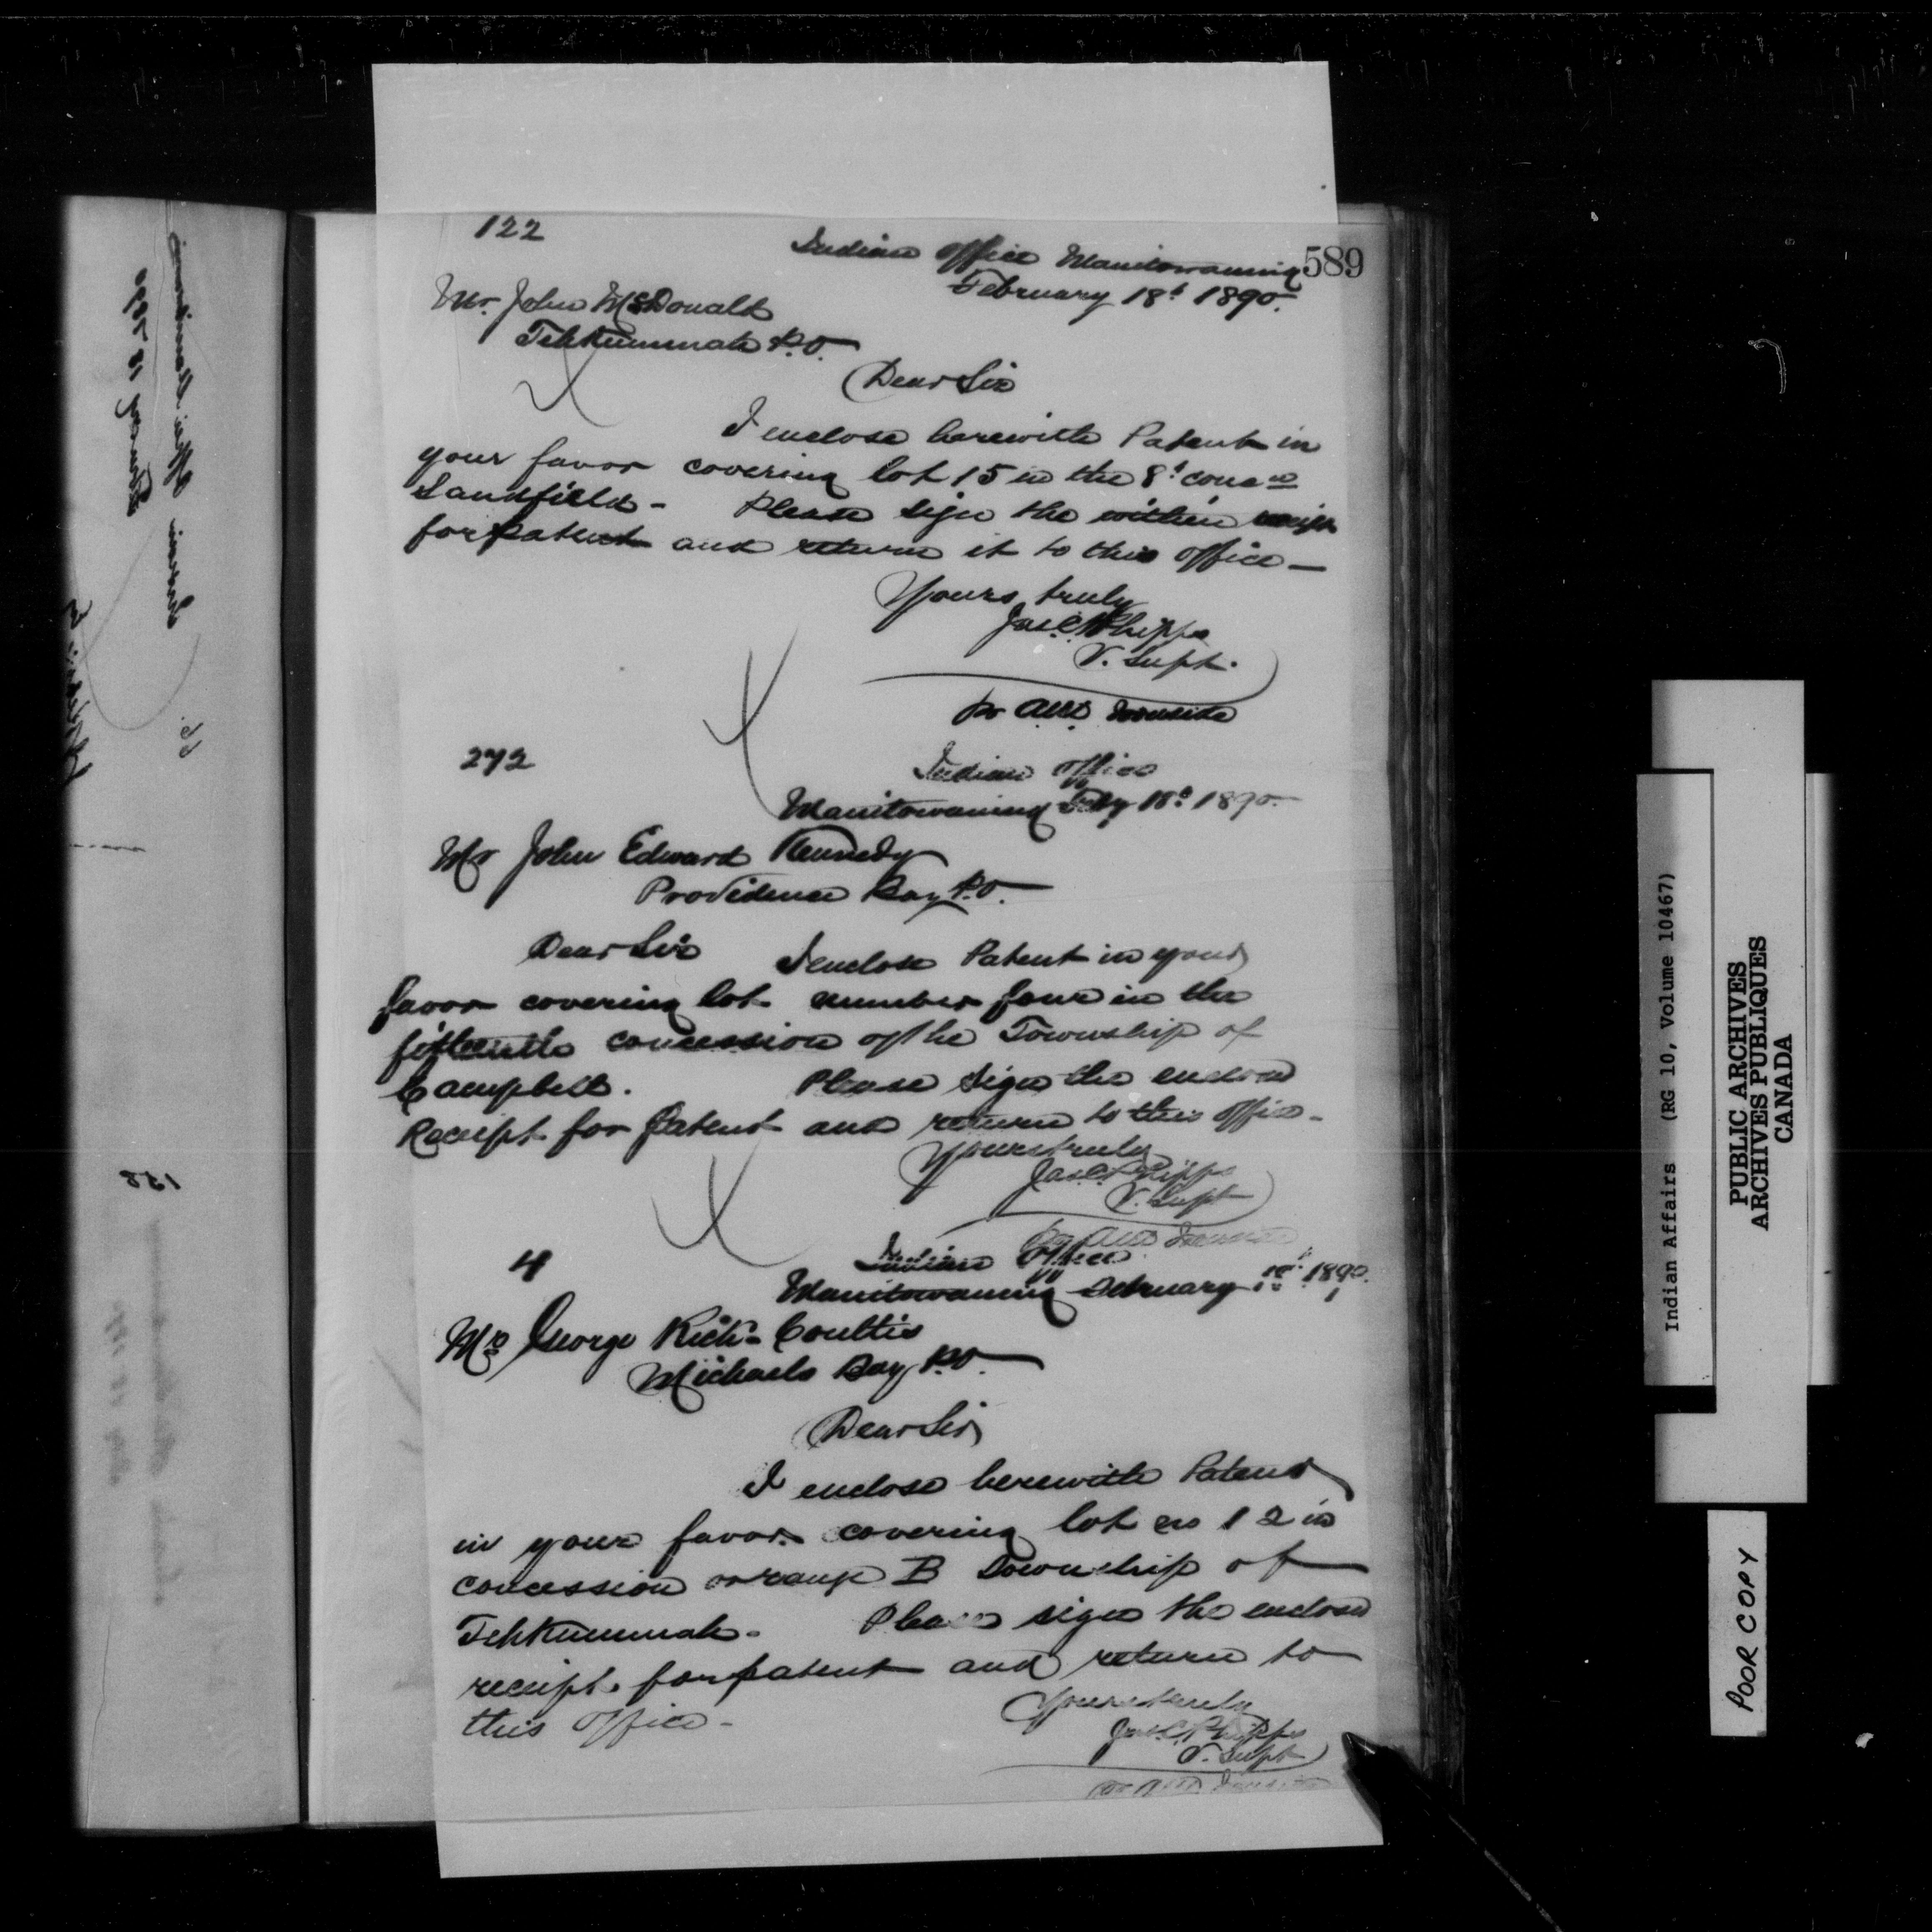 122
Indian Office Manitowaning
589
February 18t 1890.
Mr. John McDonald
Tehkummah P.O.
Dear Sir
I enclose herewith Patent in
your favor covering lot 15 in the 8t conc n
Sandfield - Please sign the within receipt
for patent and return it to this office -
Yours truly
Jas. C. Phipps
V. Supt.
272
Indian Office
Manitowaning Feby 18t 1890.
Mr John Edward Kennedy
Providence Bay P.O.
Dear Sir I enclose Patent in your
favor covering lot number four in the
fifteenth concession of the Township of
Campbell. Please sign the enclosed
Receipt for Patent and return to this office -
Yours truly
Jas. C. Phipps
V. Supt
4
Indian Office
Manitowaning February 1890.
Mr George Coultis
Michaels Bay P.O.
Dear Sir
I enclose herewith Patent
in your favor covering lot no 12 in
concession or range B Township of
Tehkummah - Please sign the enclosed
receipt for patent and return to
this office -
Yours truly
Jas. C. Phipps
V. Supt
Indian Affairs (RG 10, Volume 10467)
PUBLIC ARCHIVES
ARCHIVES PUBLIQUES
CANADA
POOR COPY